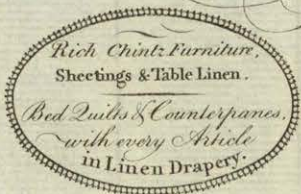 Rich Chintz Furniture,
Sheetings & Table Linen.
Bed Quilts & Counterpanes,
with every Article
in Linen Drapery.